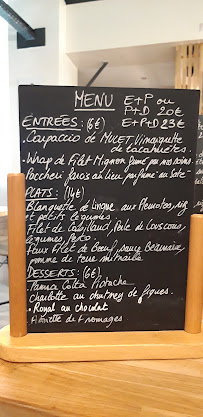 MENU E+P ou
P+D 20€
ENTRÉES: (6€) E+P+D 23€
• Carpaccio de MULET, Vinaigrette
de cacahuètes
• Wrap de Filet Mignon fumé par nos soins
au lieu parfumé au
PLATS: (14€)
Blanquette de aux riz
et petits légumes
Filet de Cabillaud, Perle de Couscous,
légumes,
Faux Filet de Bœuf, sauce Béarnaise,
pomme de terre mitraille
DESSERTS: (6€)
Panna Cotta Pistache
Charlotte au chutney de figues.
• Royal au chocolat
Assiette de Fromages